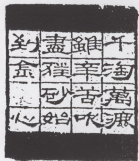 千淘萬漉
雖辛苦吹
盡狂砂始
到金心